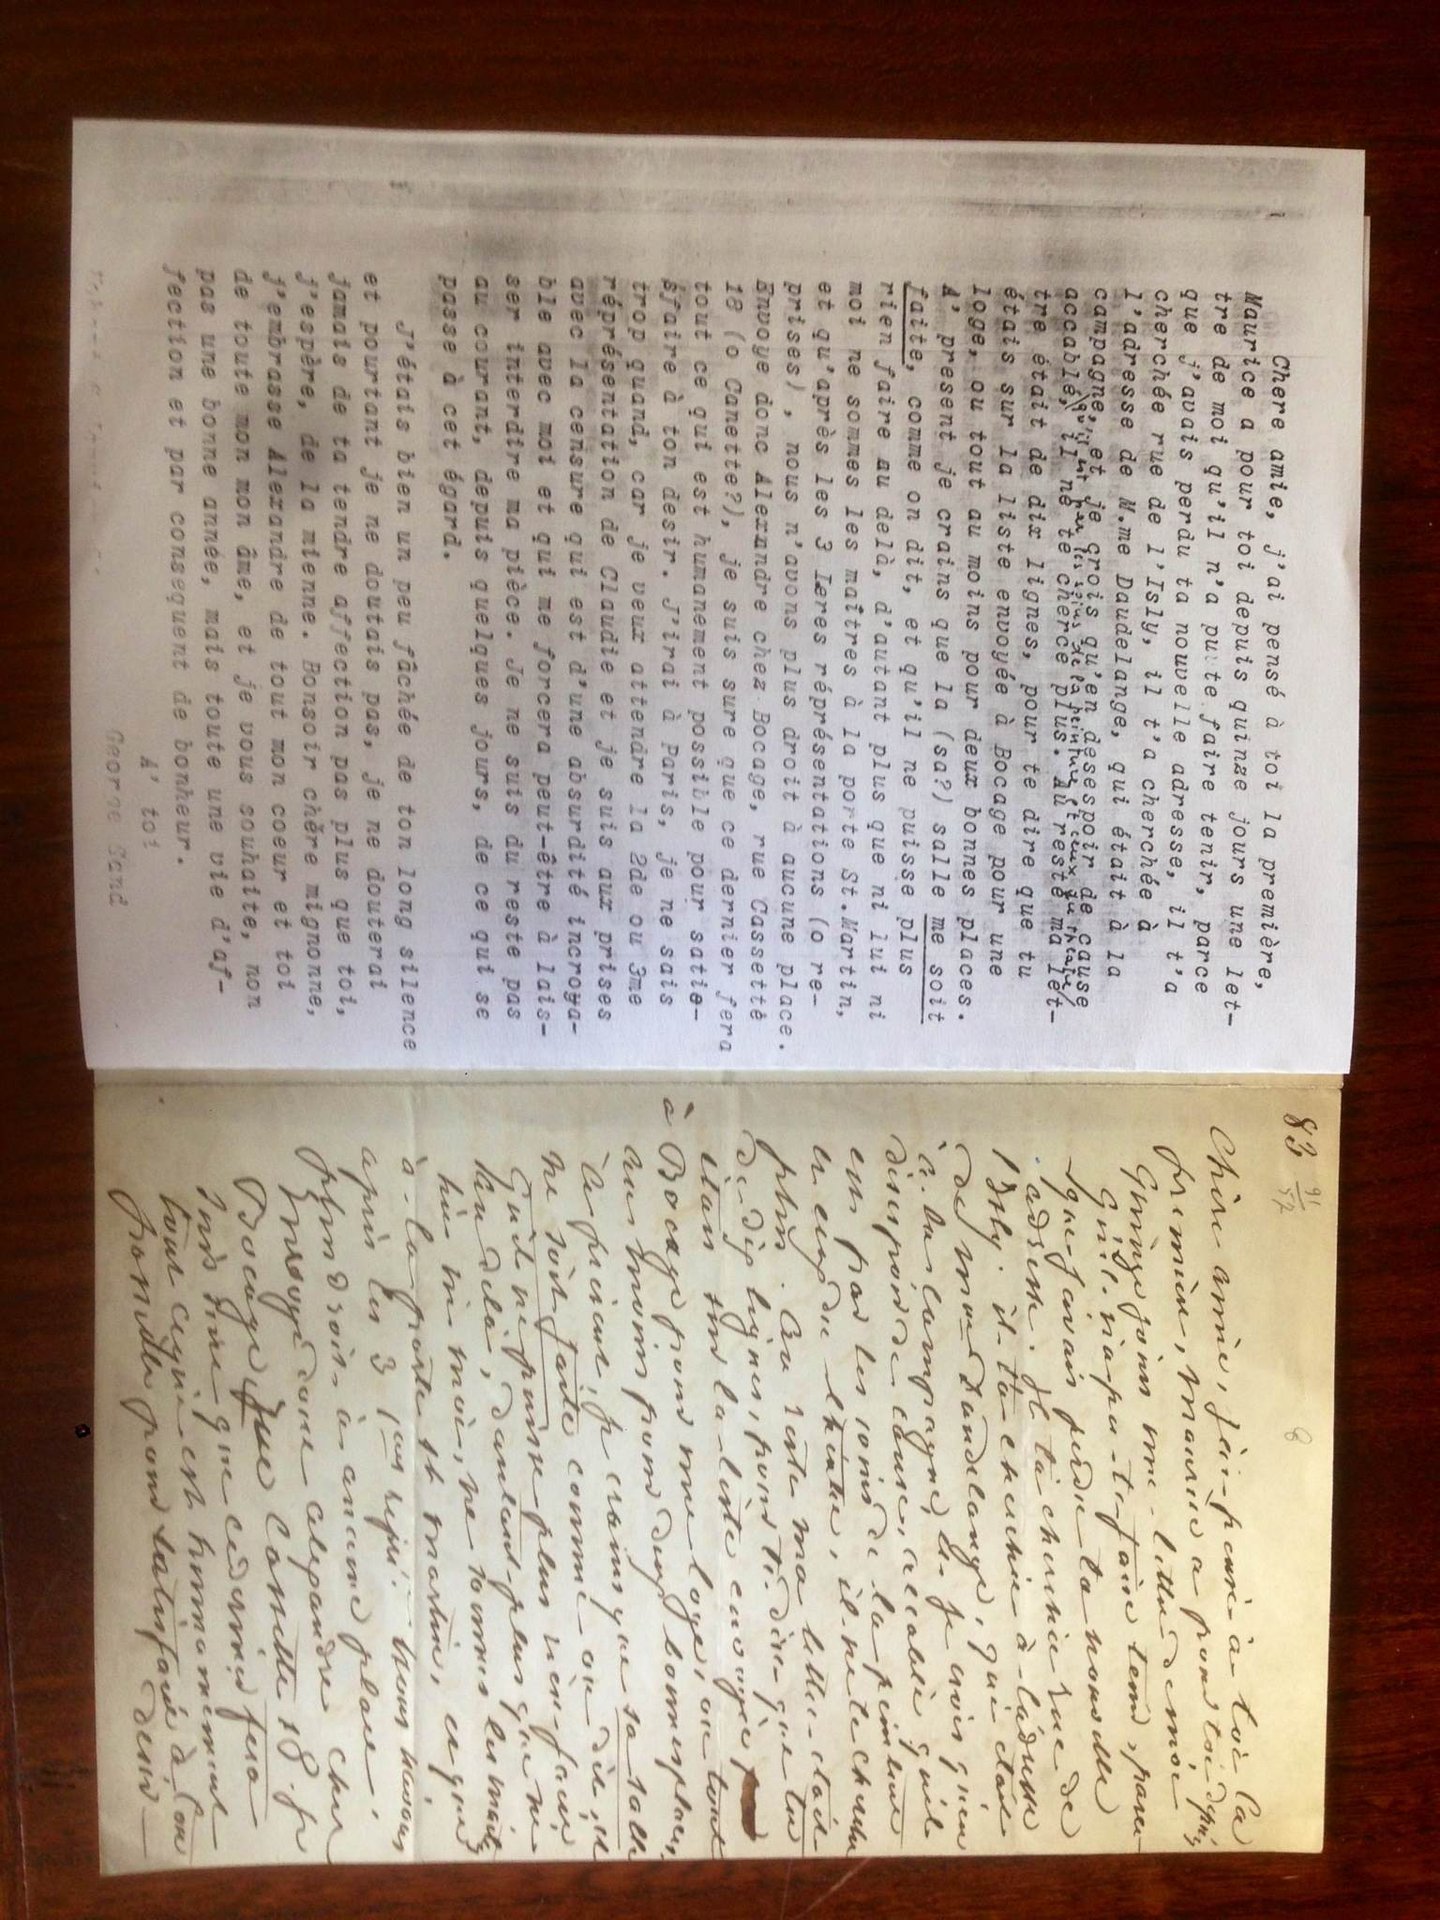 Chere amie, j'ai pensé à toi la première,
Maurice a pour toi depuis quinze jours une let-
tre de moi qu'il n'a pu te faire tenir, parce
que j'avais perdu ta nouvelle adresse, il t'a
cherchée rue de l'Isly, il t'a cherchée à
l'adresse de M.me Daudelange, qui était à la
campagne, et je crois qu'en desespoir de cause
accablé, qu'il est par les soins de la peinture et ceux du théatre,
il ne te cherce plus. Au reste ma let-
tre était de dix lignes, pour te dire que tu
étais sur la liste envoyée à Bocage pour une
loge, ou tout au moins pour deux bonnes places.
A' present je crains que la (sa?) salle me soit
faite, comme on dit, et qu'il ne puisse plus
rien faire au delà, d'autant plus que ni lui ni
moi ne sommes les maîtres à la porte St.Martin,
et qu'après les 3 Ieres réprésentations (o re-
prises), nous n'avons plus droit à aucune place.
Envoye donc Alexandre chez Bocage, rue Cassette
18 (o Canette?), je suis sure que ce dernier fera
tout ce qui est humanement possible pour satie-
sfaire à ton desir. J'irai à Paris, je ne sais
trop quand, car je veux attendre la 2de ou 3me
réprésentation de Claudie et je suis aux prises
avec la censure qui est d'une absurdité incroya-
ble avec moi et qui me forcera peut-être à lais-
ser interdire ma pièce. Je ne suis du reste pas
au courant, depuis quelques jours, de ce qui se
passe à cet égard.
J'étais bien un peu fâchée de ton long silence
et pourtant je ne doutais pas, je ne douterai
jamais de ta tendre affection pas plus que toi,
j'espère, de la mienne. Bonsoir chère mignonne,
j'embrasse Alexandre de tout mon coeur et toi
de toute mon mon âme, et je vous souhaite, non
pas une bonne année, mais toute une vie d'af-
fection et par consequent de bonheur.
A' toi
George Sand
83 91/57
8
Chère amie, j'ai pensé à toi la
première, Maurice a pour toi depuis
quinze jours une lettre de moi
qu'il n'a pu te faire tenir, parce
que j'avais perdu ta nouvelle
adresse. Il t'a cherchée rue de
l'Isly. il t'a cherchée à l'adresse
de Mme Daudelange, qui était
à la campagne, et je crois qu'en
désespoir de cause, accablé qu'il
est par les soins de la peinture
et ceux du théatre, il ne te cherche
plus. Au reste ma lettre était
de dix lignes, pour te dire que tu
étais sur la liste envoyée
à Bocage pour une loge, ou tout
au moins pour deux bonnes places,
à présent, je crains que sa salle
ne soit faite comme on dit, et
qu'il ne puisse plus rien faire
au delà, d'autant plus que ni
lui ni moi, ne sommes les maîtres
à la porte St Martin, et que
après les 3 1ères repr.: nous n'avons
plus droit à aucune place.
Envoye donc Alexandre chez
Bocage rue Cassette 18. je
suis sure que ce dernier fera
tout ce qui est humainement
possible pour satisfaire à ton
desir